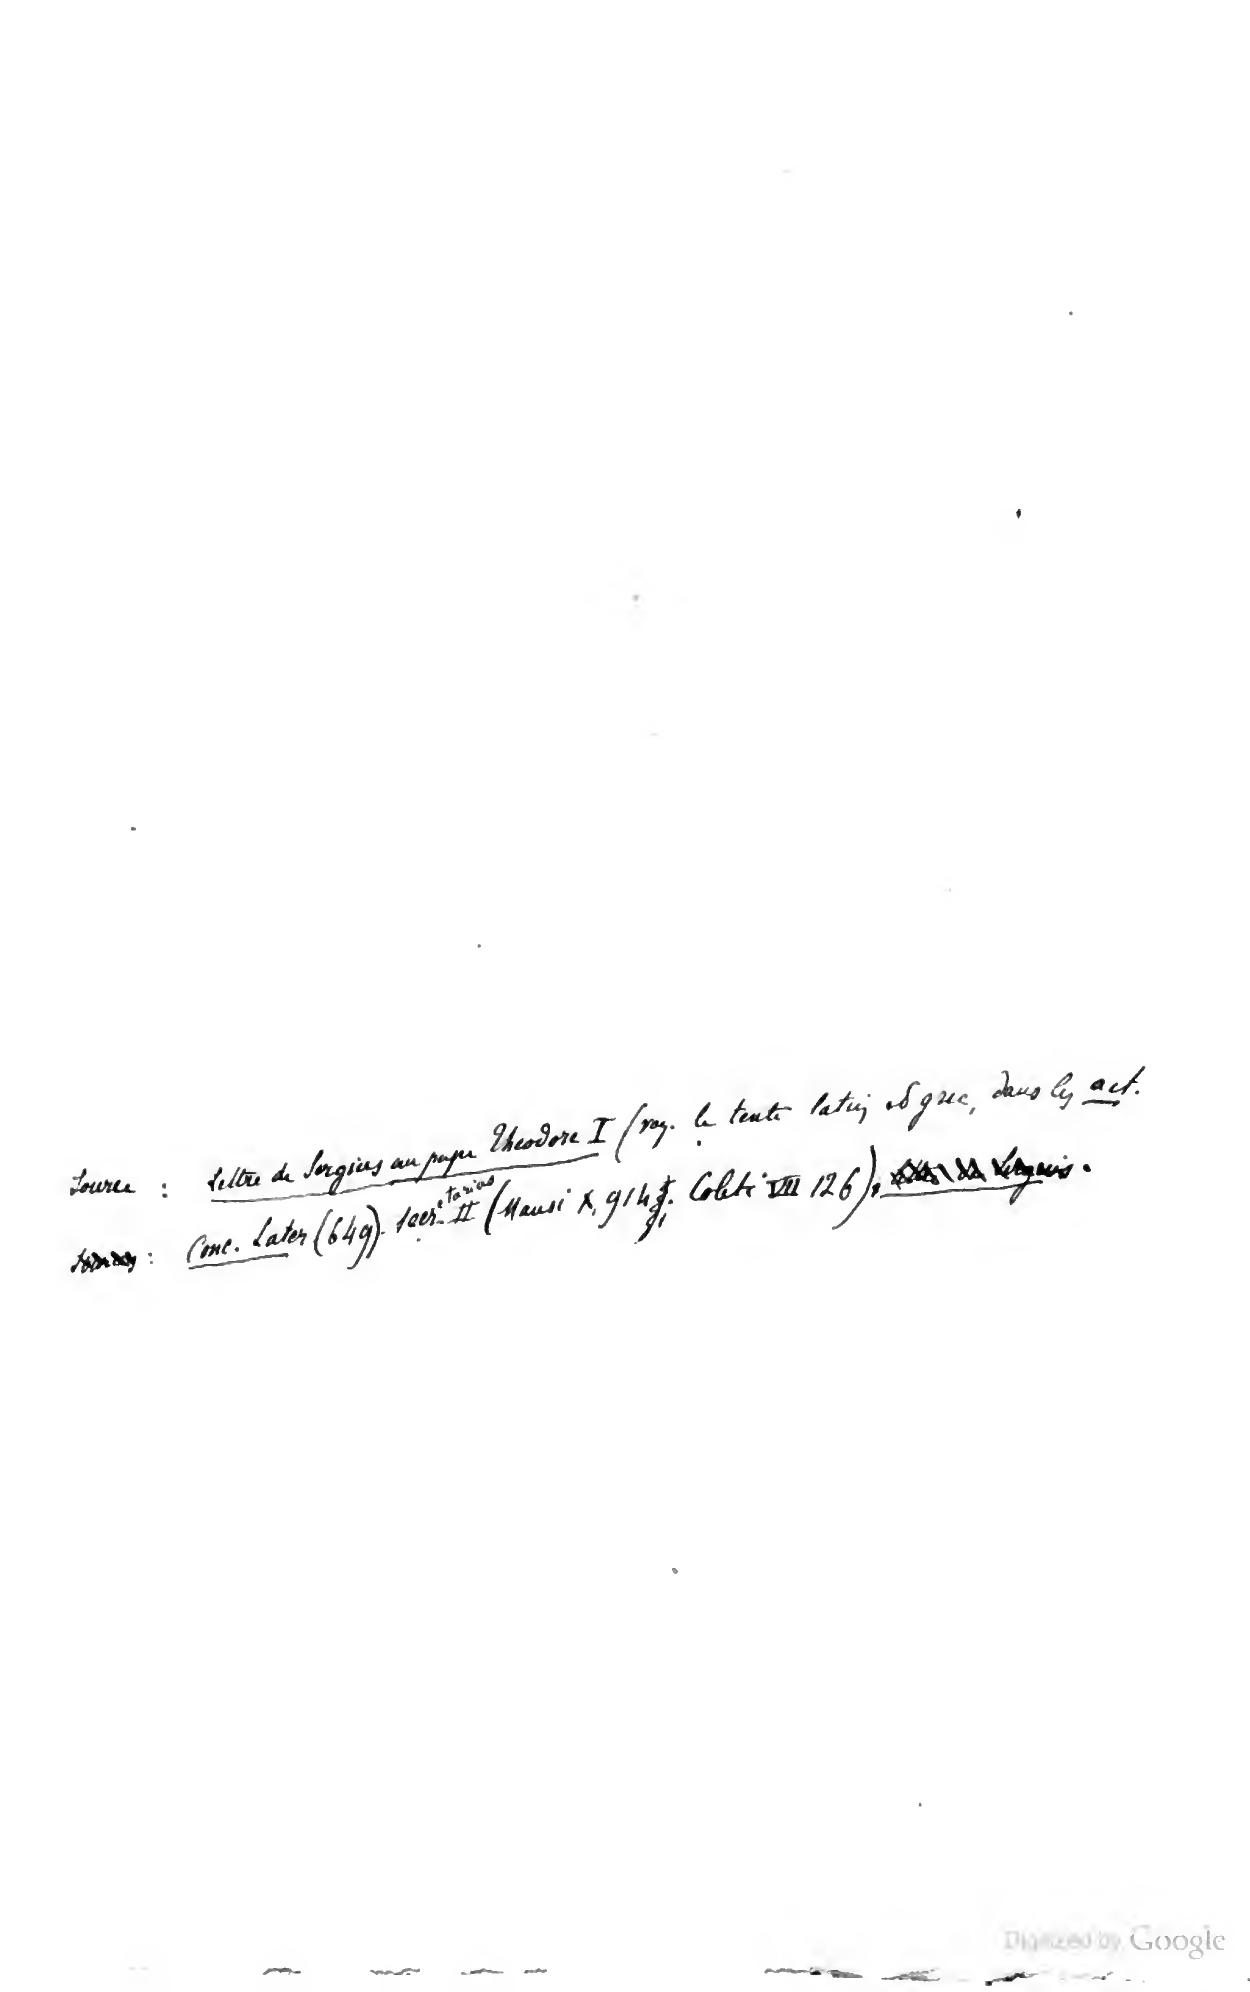 Source : Lettre de Sergius au pape Theodore I (voy. le texte latin et grec, dans les act.
Conc. Later (649). Secretarius II (Mansi X, 914 Coleti VII 126).
Digitized by Google